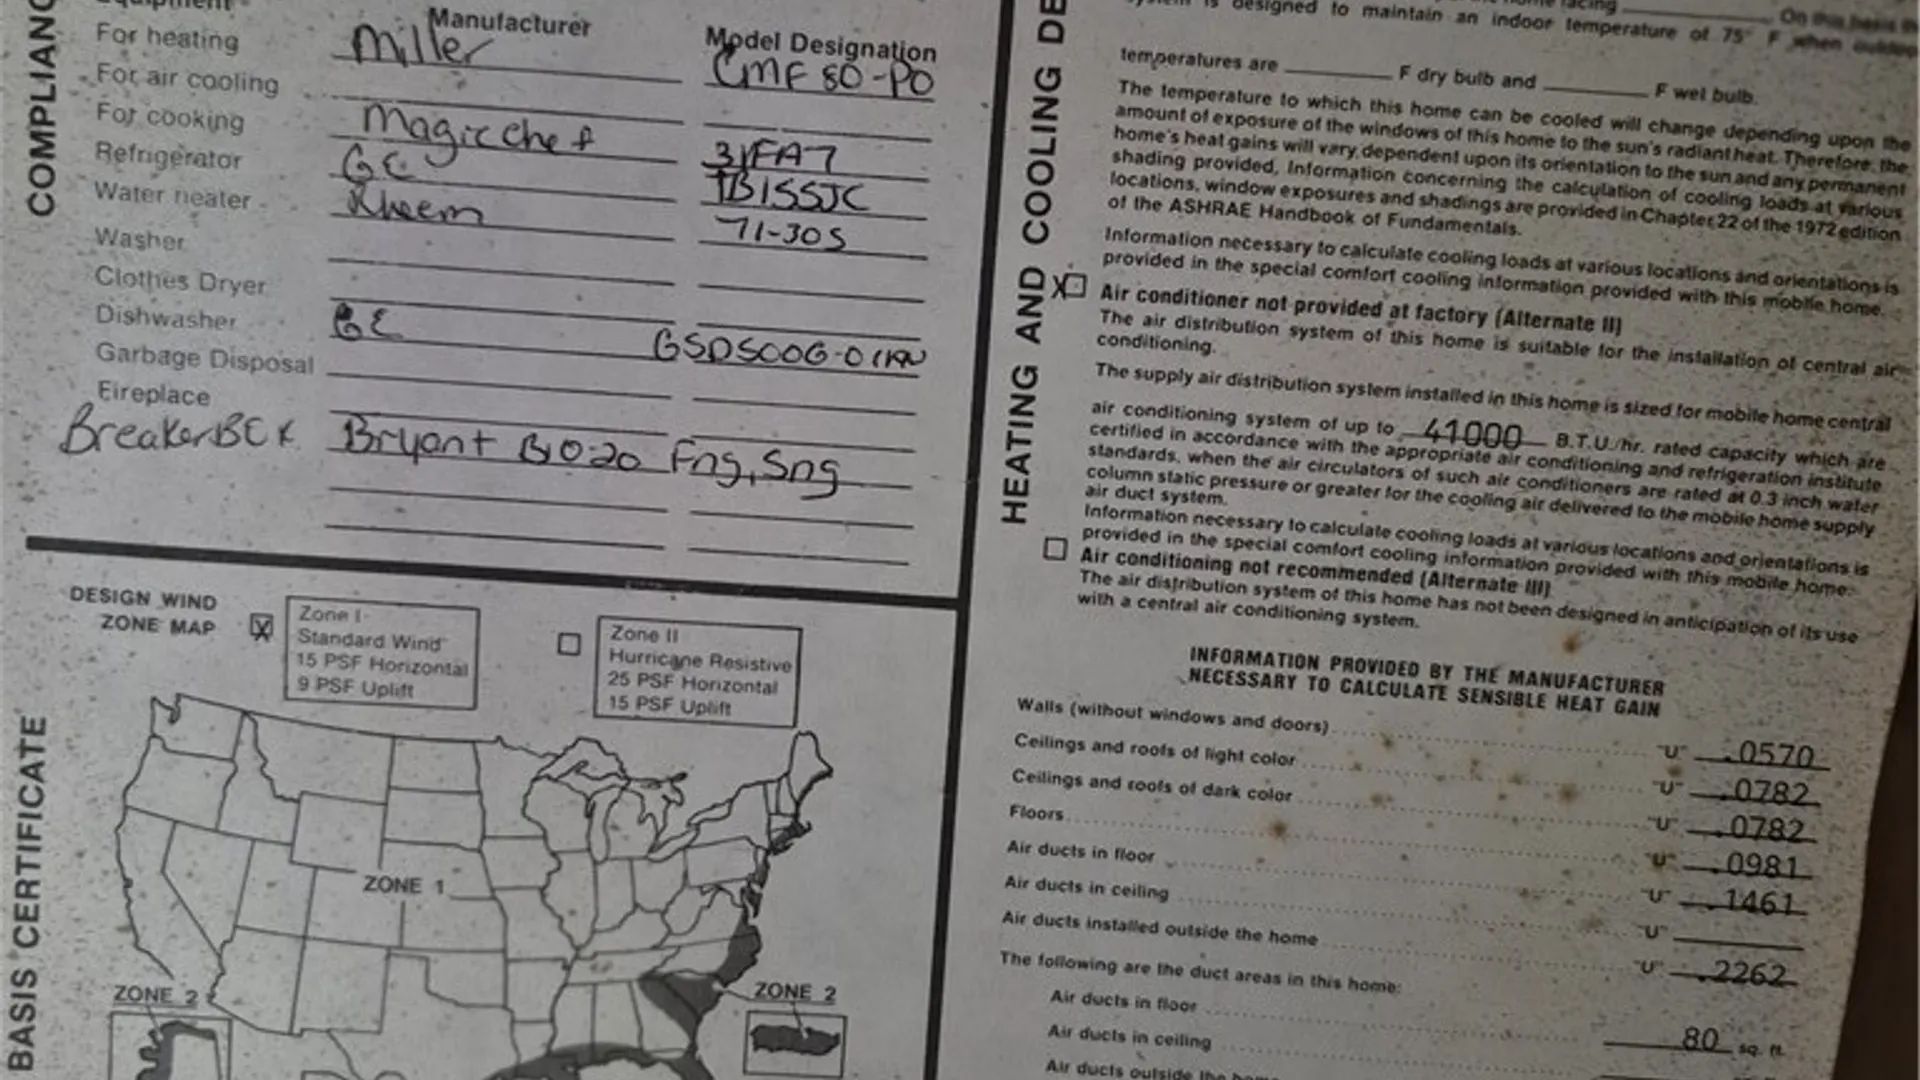 COMPLIANC
Equipment Manufacturer Model Designation
For heating Miller CMF 80-PO
For air cooling
For cooking Magic Chef 31FA7
Refrigerator GE TB15SJC
Water heater Rheem 71-30S
Washer
Clothes Dryer
Dishwasher GE GSD500G-01
Garbage Disposal
Fireplace
Breaker Bryant Fng, Sng
BASIS CERTIFICATE
DESIGN WIND
ZONE MAP
Zone I
Standard Wind
15 PSF Horizontal
9 PSF Uplift
Zone II
Hurricane Resistive
25 PSF Horizontal
15 PSF Uplift
ZONE 1
ZONE 2
ZONE 2
HEATING AND COOLING DE
home facing On this basis
system is designed to maintain an indoor temperature of 75° F when outdoor
temperatures are F dry bulb and F wet bulb.
The temperature to which this home can be cooled will change depending upon the
amount of exposure of the windows of this home to the sun's radiant heat. Therefore, the
home's heat gains will vary dependent upon its orientation to the sun and any permanent
shading provided, Information concerning the calculation of cooling loads at various
locations, window exposures and shadings are provided in Chapter 22 of the 1972 edition
of the ASHRAE Handbook of Fundamentals.
Information necessary to calculate cooling loads at various locations and orientations is
provided in the special comfort cooling information provided with this mobile home.
X Air conditioner not provided at factory (Alternate II)
The air distribution system of this home is suitable for the installation of central air
conditioning.
The supply air distribution system installed in this home is sized for mobile home central
air conditioning system of up to 41000 B.T.U./hr. rated capacity which are
certified in accordance with the appropriate air conditioning and refrigeration institute
standards, when the air circulators of such air conditioners are rated at 0.3 inch water
column static pressure or greater for the cooling air delivered to the mobile home supply
air duct system.
Information necessary to calculate cooling loads at various locations and orientations is
provided in the special comfort cooling information provided with this mobile home.
Air conditioning not recommended (Alternate III)
The air distribution system of this home has not been designed in anticipation of its use
with a central air conditioning system.
INFORMATION PROVIDED BY THE MANUFACTURER
NECESSARY TO CALCULATE SENSIBLE HEAT GAIN
Walls (without windows and doors) "U" .0570
Ceilings and roofs of light color "U" .0782
Ceilings and roofs of dark color "U" .0782
Floors "U" .0981
Air ducts in floor "U" .1461
Air ducts in ceiling "U"
Air ducts installed outside the home "U" .2262
The following are the duct areas in this home:
Air ducts in floor 80 sq. ft.
Air ducts in ceiling
Air ducts outside the home